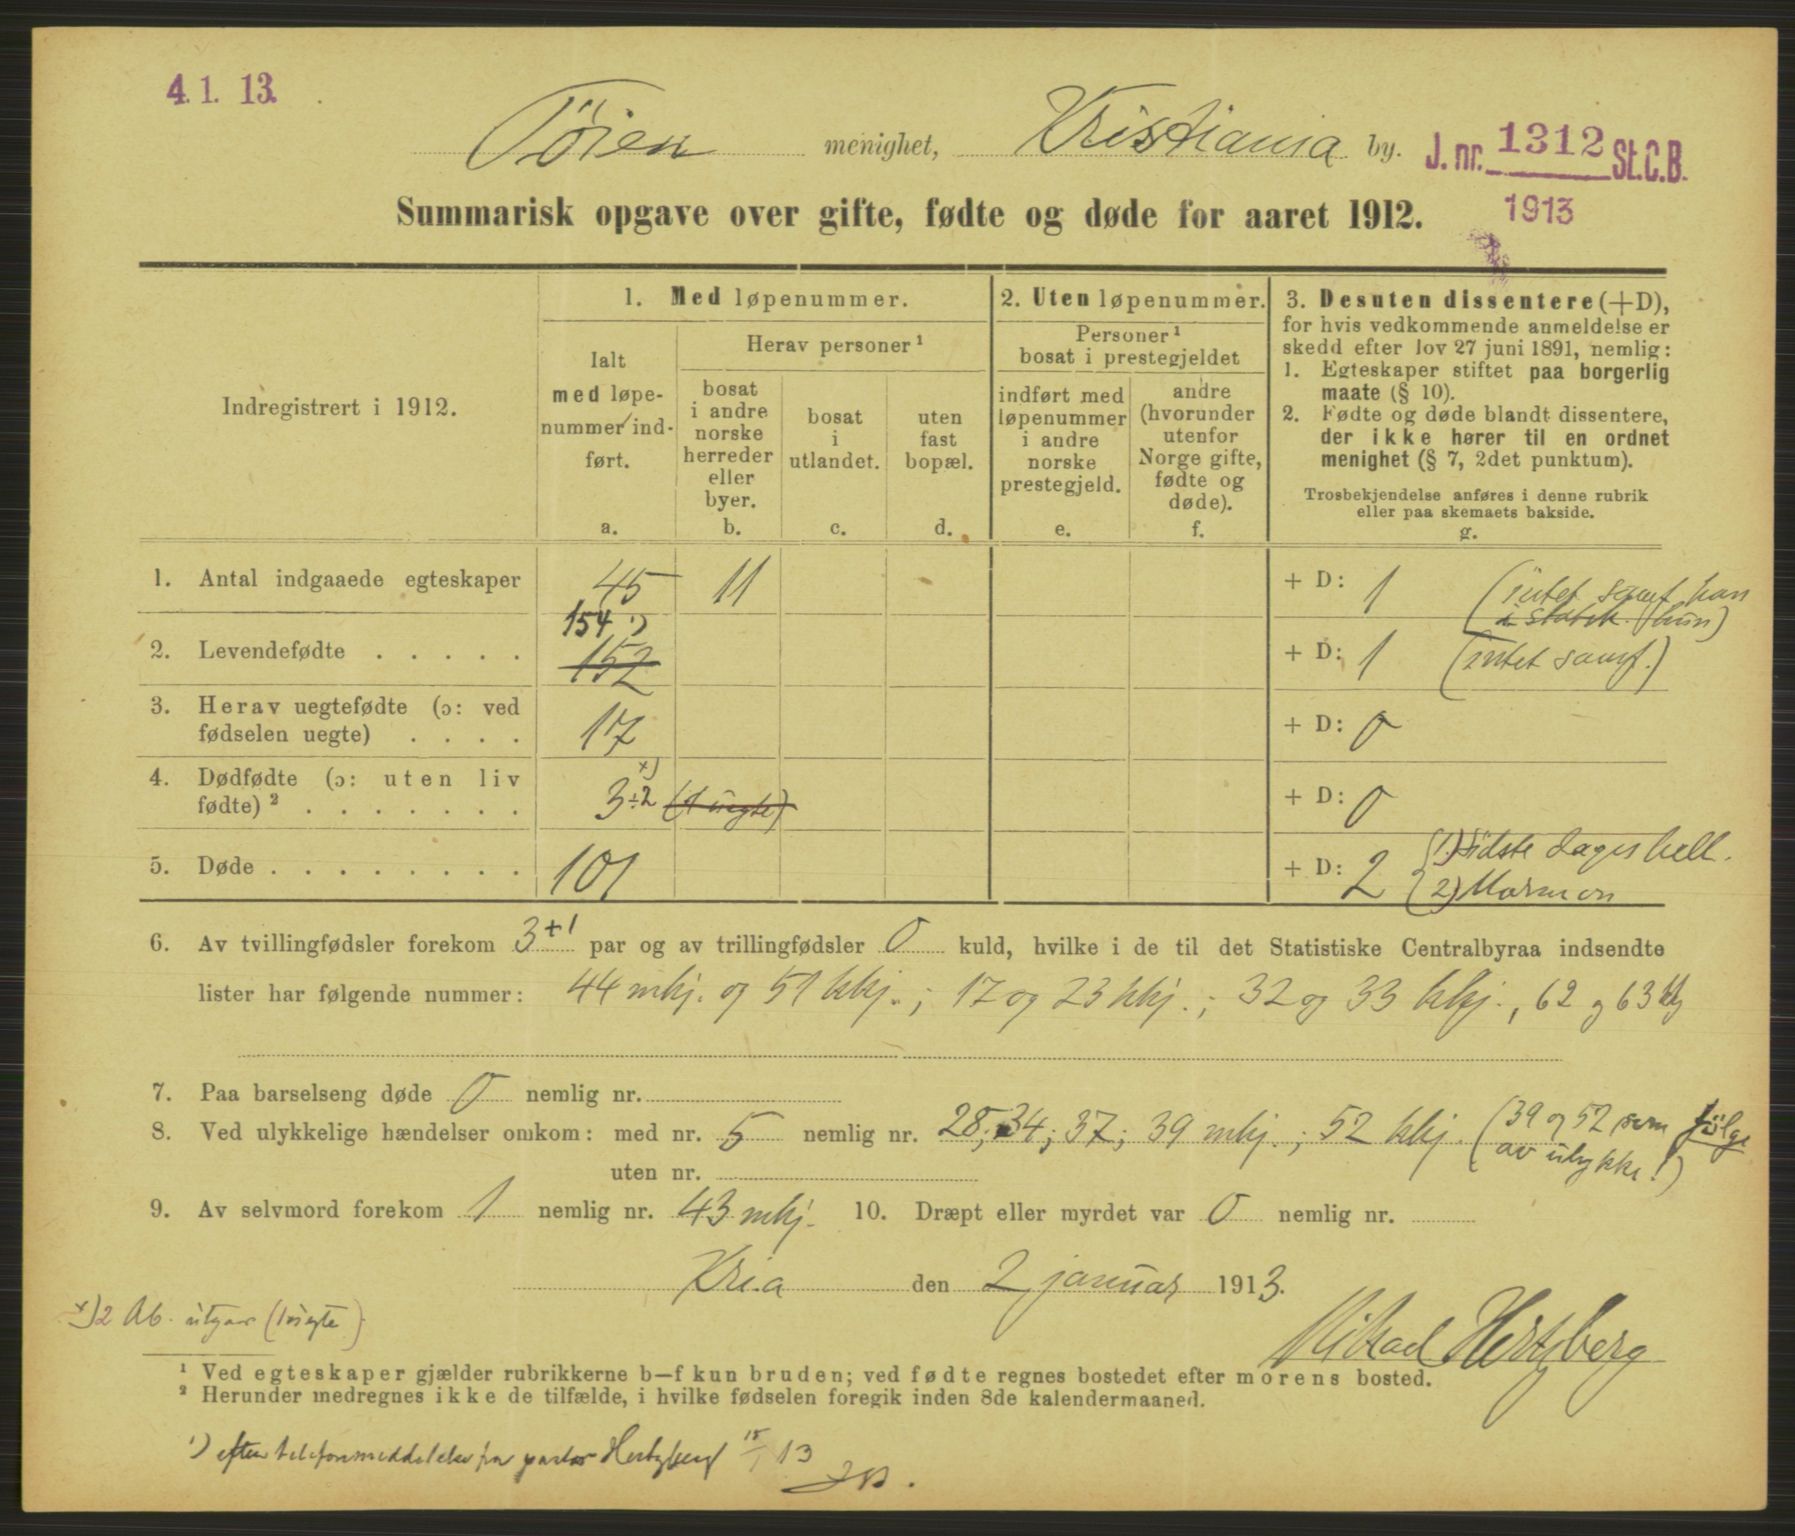 4.1.13.
Töien menighet, Kristiania by.
J. nr. 1312 St.C.B.
1913
Summarisk opgave over gifte, fødte og døde for aaret 1912.
Indregistrert i 1912.
1. Med løpenummer.
Ialt
med løpe-
nummer ind-
ført.
a.
Herav personer ¹
bosat
i andre
norske
herreder
eller
byer.
b.
bosat
i
utlandet.
c.
uten
fast
bopæl.
d.
2. Uten løpenummer.
Personer ¹
bosat i prestegjeldet
indført med
løpenummer
i andre
norske
prestegjeld.
e.
andre
(hvorunder
utenfor
Norge gifte,
fødte og
døde).
f.
3. Desuten dissentere (+D),
for hvis vedkommende anmeldelse er
skedd efter lov 27 juni 1891, nemlig:
1. Egteskaper stiftet paa borgerlig
maate (§ 10).
2. Fødte og døde blandt dissentere,
der ikke hører til en ordnet
menighet (§ 7, 2det punktum).
Trosbekjendelse anføres i denne rubrik
eller paa skemaets bakside.
g.
1. Antal indgaaede egteskaper 45 11 + D: 1 (intet samf. han
i statsk. hun)
154 ¹)
2. Levendefødte . . . . . 152 + D: 1 (intet samf.)
3. Herav uegtefødte (ɔ: ved
fødselen uegte) . . . . 17 + D: 0
4. Dødfødte (ɔ: uten liv
fødte) ² . . . . . . . 3÷2 x) (1 uegte) + D: 0
5. Døde . . . . . . . . . 101 + D: 2 (1) Sidste dages hell.
(2) Mormon
6. Av tvillingfødsler forekom 3+1 par og av trillingfødsler 0 kuld, hvilke i de til det Statistiske Centralbyraa indsendte
lister har følgende nummer: 44 mkj. og 51 kkj.; 17 og 23 kkj.; 32 og 33 kkj., 62 og 63 kkj
7. Paa barselseng døde 0 nemlig nr.
8. Ved ulykkelige hændelser omkom: med nr. 5 nemlig nr. 28; 34; 37; 39 mkj.; 52 kkj. (39 og 52 som følge
av ulykke!)
uten nr.
9. Av selvmord forekom 1 nemlig nr. 43 mkj. 10. Dræpt eller myrdet var 0 nemlig nr.
Kria den 2 januar 1913.
x) 2 Ab. utgaar (1 uegte)
Mikael Hertzberg
¹ Ved egteskaper gjælder rubrikkerne b—f kun bruden; ved fødte regnes bostedet efter morens bosted.
² Herunder medregnes ikke de tilfælde, i hvilke fødselen foregik inden 8de kalendermaaned.
¹) efter telefonmeddelelse fra pastor Hertzberg 15/1 13